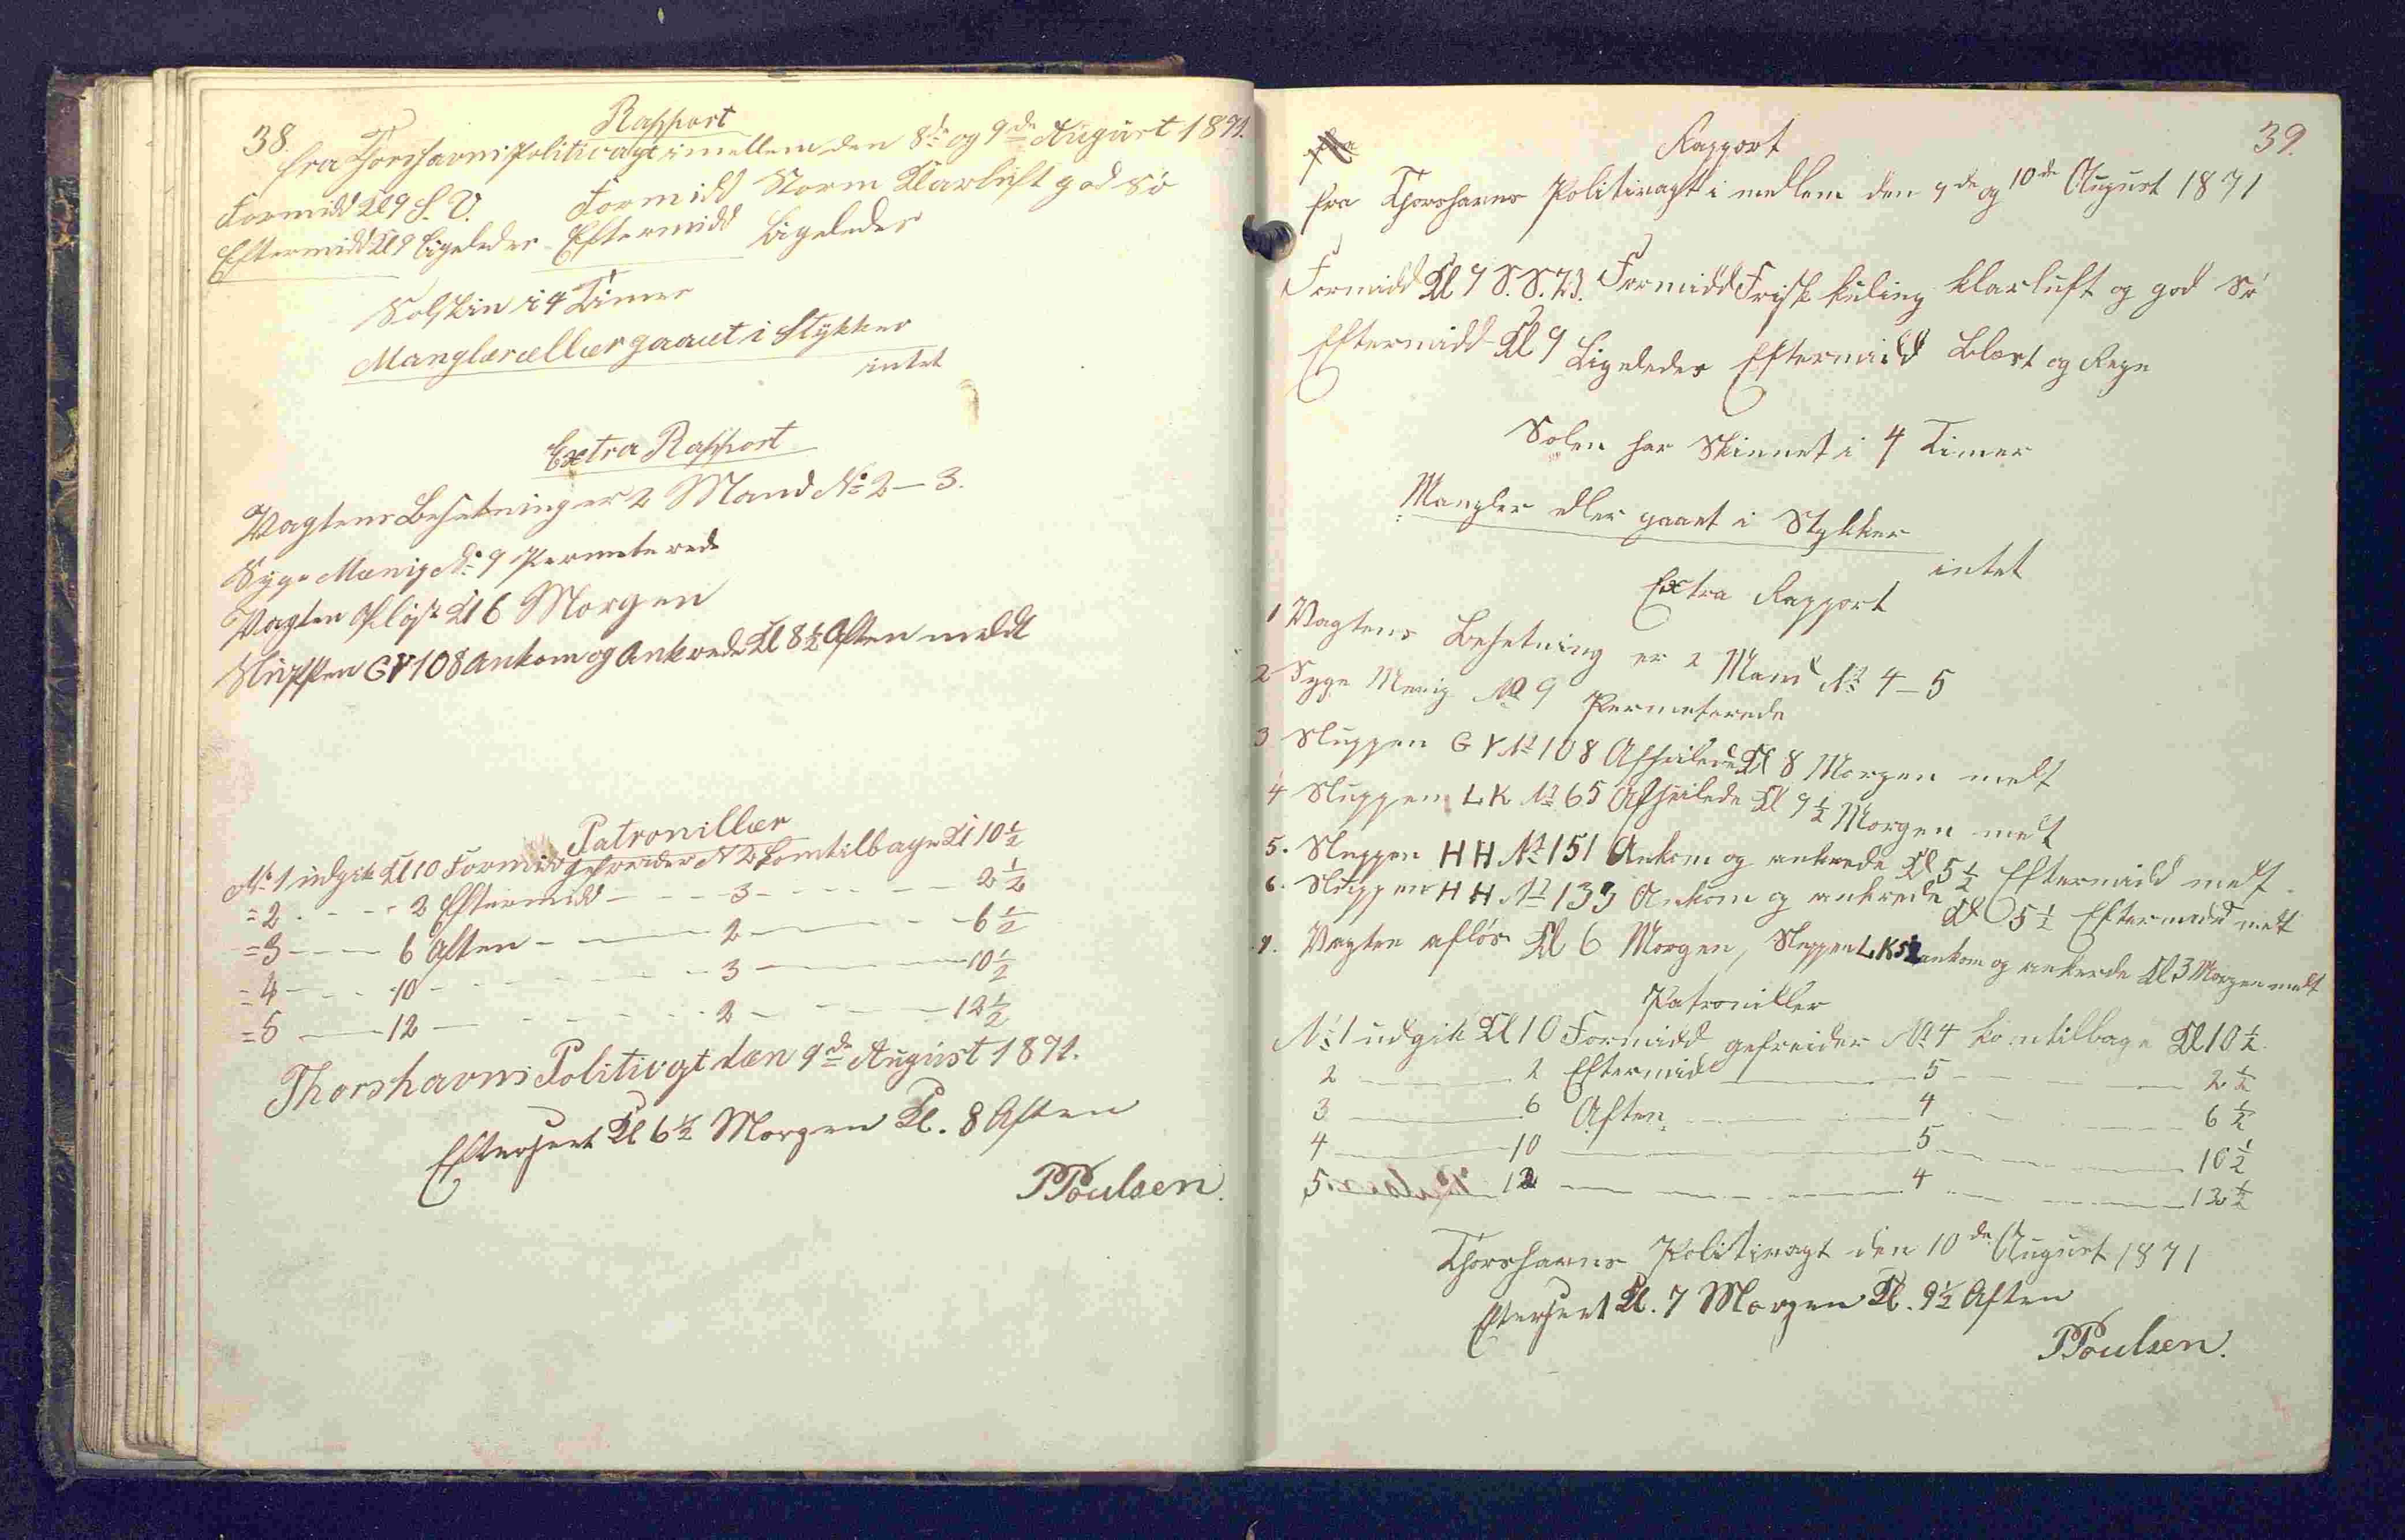 38.
Rapport
fra Thorshavns Politivagt imellem den 8de og 9de August 1871.
Formidd Kl 9 S. V. Formidd Storm Klarluft god Sö
Eftermidd Kl 9 Ligeledes Eftermidd Ligeledes
Solskin i 4 Timer
Manglær ællær gaaet i Stykker
intet
Extra Rapport
Vagtens Besetning er 2 Mand No 2 – 3.
Syge Menig No 9 Permeterede
Vagten Afløst Kl 6 Morgen
Sluppen GY 108 Ankom og Ankrede Kl 8½ Aften meldt
Patronillær
No 1 udgik Kl 10 Formidd gefreider N 2 komtilbage Kl 10½
= 2 - - - 2 Eftermidd - - - 3 - - - - 2½
= 3 - - - 6 Aften - - - 2 - - - - 6½
= 4 - - - 10 - - - - 3 - - - - 10½
= 5 - - - 12 - - - - 2 - - - - 12½
Thorshavns Politivgt den 9de August 1871.
Efterseet Kl 6½ Morgen Kl. 8 Aften
PPoulsen.
39.
Rapport
fra Thorshavns Politivagt i mellem den 9de og 10de August 1871
Formidd Kl 9 S. S. V. Formidd Frisk kuling klarluft og god Sö
Eftermidd Kl 9 Ligeledes Eftermidd Blæst og Regn
Solen har Skinnet i 4 Timer
Mangler eller gaaet i Stykker
intet
Extra Rapport
1 Vagtens Besetning er 2 Mand No 4 – 5
2 Syge Menig No 9 Permeterede
3 Sluppen GY No 108 Afseilede Kl 8 Morgen melt
4 Sluppen LK No 65 Afseilede Kl 9½ Morgen melt
5. Sluppen HH No 151 Ankom og ankrede Kl 5½ Eftermidd melt.
6. Sluppen HH No 133 Ankom og ankrede Kl 5½ Eftermidd melt
7. Vagten afløst Kl 6 Morgen, Sluppen LK 52 ankom og ankrede Kl 3 Morgen melt
Patroniller
No 1 udgik Kl 10 Formidd gefreider No 4 komtilbage Kl 10½.
2 - - - 2 Eftermid - - - 5 - - - 2½
3 - - - 6 Aften - - - 4 - - - 6½
4 - - - 10 - - - 5 - - - 10½
5 - - - 12 - - - 4 - - - 12½
Thorshavns Politivagt den 10de August 1871
Efterseet Kl. 7 Morgen Kl. 9½ Aften
PPoulsen.